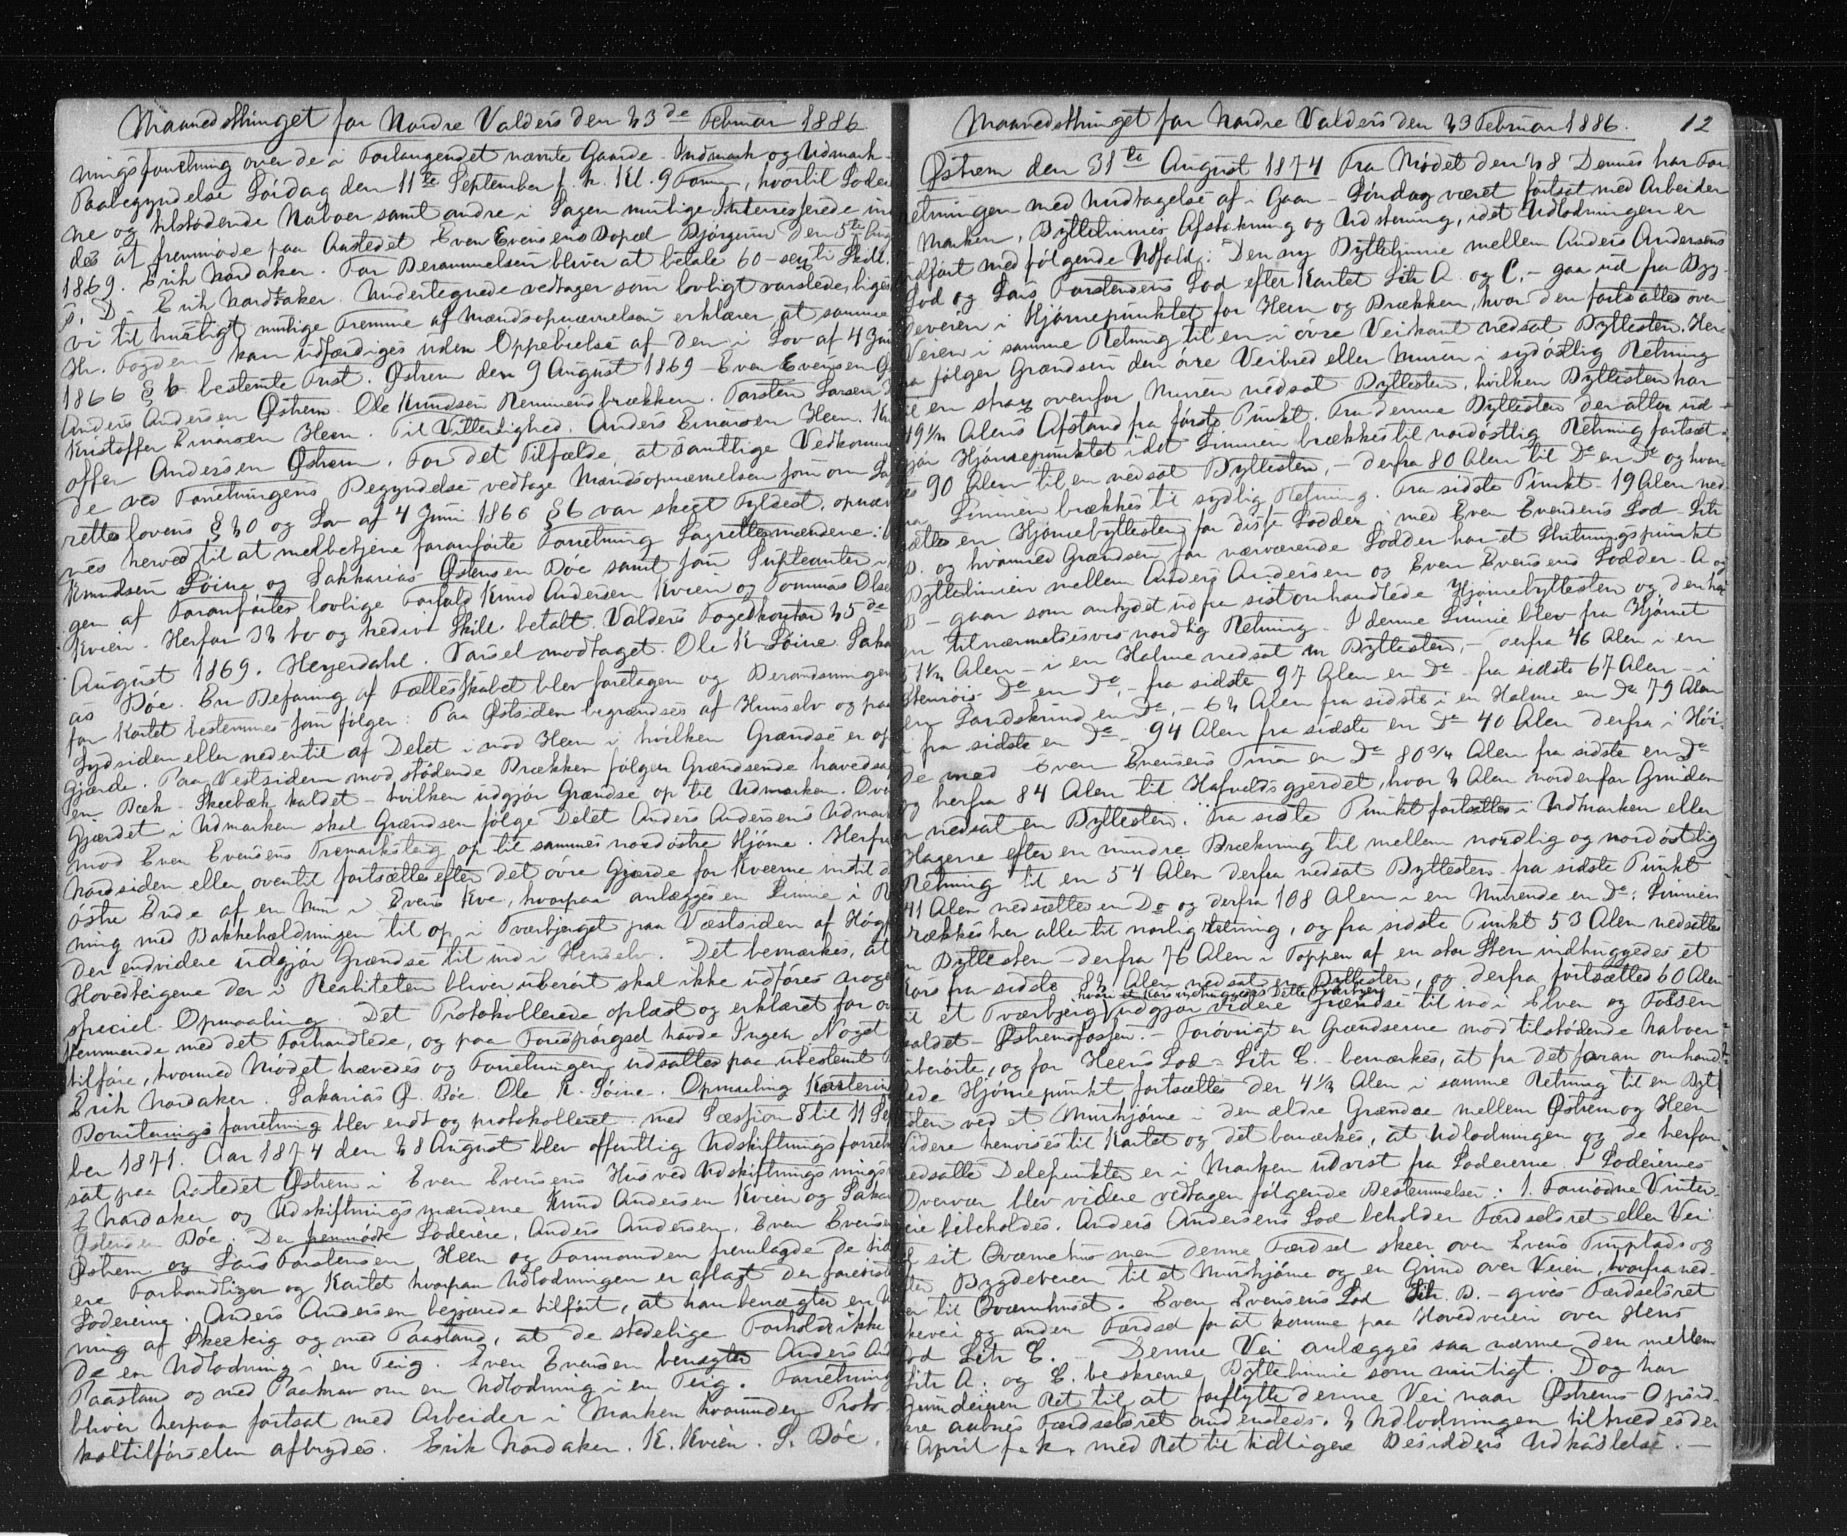 Maanedsthinget for Nordre Valders den 23de Februar 1886.
ningsforretning over de i Forlangendet nævnte Gaarde - Indmark og Udmark -
Paabegyndelse Lördag den 11te September f. k. Kl. 9 Form, hvortil Lodeier
ne og tilstödende Naboer samt andre i Sagen mulige Interresserede ind
des at fremmöde paa Aastedet Even Evensens Bopæl Björgum Den 5te Aug
1869. Erik Nordaker. For Berammelsen bliver at betale 60 - sexti Skill.
s. D. Erik Nordaker. Undertegnede vedtager som lovligt varslede, liges
vi til hurtigt mulige Fremme af Mandsopnævnelsen erklærer at samme
Hr. Fogden kan udfærdiges uden Oppebielse af den i Lov af 4 Juni
1866 § 6 bestemte Frist. Østrem den 9 August 1869 - Even Evensen Ø
Anders Andersen Østrem. Ole Knudsen Remmensbrækken. Torsten Larsen
Kristoffer Einarsen Heen. Til Vitterlighed: Anders Einarsen Heen. Kri
offer Andersen Østrem. For det Tilfælde, at samtlige Vedkomme
de ved Forretningens Begyndelse vedtage Mandsopnævnelsen som om La
retteslovens § 20 og Lov af 4 Juni 1866 § 6 var skeet Fyldest, opnæv
nes herved til at medbetjene foranförte Forretning Lagrettesmændene:
Knudsen Löine og Sakkarias Østensen Böe samt som Supleanter i
gen af Foranförtes lovlige Forfald Knud Andersen Kvien og Tommas Olse
Kvien. Herfor 32 to og tredive Skill. betalt. Valders Fogedkontor 25de
August 1869. Heyerdahl. Varsel modtaget. Ole K Löine. Saka
ias Böe. En Befaring af Fællesskabet blev foretagen og Berandsningen
for Kartet bestemmes som fölger: Paa Østsiden begrændses af Hunselv og paa
Sydsiden eller nedentil af Delet i mod Heen i hvilken Grændse er op
gjærde. Paa Vestsiden mod stödende Brækken fölger Grændsende havedsa
en Bæk - Skeebæk kaldet - hvilken udgjör Grændse op til Udmarken. Ove
Gjærdet i Udmarken skal Grændsen fölge Delet Anders Andersens Udmar
mod Even Evensens Fremarksteig op til sammes nordöstre Hjörne. Herfra
Nordsiden eller oventil fortsættes efter det övre Gjærde for Kveerne indtil d
östre Ende af en Mur i Evens Kve, hvorpaa anlægges en Linie i R
ning med Bakkehældningen til op i Tværbjerget paa Vestsiden af Högf
der endvidere udgjör Grændse til ind i Hunselv. Det bemærkes, at
Hovedteigene der i Realiteten bliver uberört skal ikke udföres noge
speciel Opmaaling. Det Protokollerede oplæst og erklæret for ov
stemmende med det Forhandlede, og paa Forespörgsel havde Ingen Noget
tilföre, hvormed Mödet hævedes og Forretningen udsattes paa ubestemt
Erik Nordaker. Sakarias Ø. Böe. Ole K. Löine. Opmaaling Kartering
Boniterings forretning blev endt og protokolleret med Læsfior 8 til 11 Se
ber 1871. Aar 1874 den 28 August blev offentlig Udskiftningsforret
sat paa Aastedet Østrem i Even Evensens Hus ved Udskiftnings
E Nordaker og Udskiftningsmændene Knud Andersen Kvien og Sakar
Østensen Böe. Der fremmödte Lodeiere, Anders Andersen, Even Evensen
Østrem og Lars Torstensen Heen og Formanden fremlagde de tid
ere Forhandliger og Kartet hvorpaa Udlodningen er aflagt der forevist
Lodeierne. Anders Andersen begjærede tilfört, at han benægter en U
ning af Skeeteig og med Paastand, at de stedelige Forholde ikke
de en Udlodning i en Teig. Even Evensen benægter Anders And
Paastand og med Paakrav om en Udlodning i en Teig. Forretning
bliver herpaa fortsat med Arbeider i Marken hvorunder Proto-
koltilförselen afbrydes. Erik Nordaker. K. Kvien. S. Böe.
Maanedsthinget for Nordre Valders den 23 Februar 1886. 12
Østrem den 31te August 1874 Fra Mödet den 28 Dennes har For
retningen med Undtagelse af i Gaar - Söndag været fortsat med Arbeider
Marken, Byttelinnies Afstikning og Udstening, idet Udlodningen er
udfört med fölgende Udfald: Den ny Byttelinnie mellem Anders Andersens
Lod og Lars Torstensens Lod efter Kartet Litr A. og C. - gaa ud fra Byg-
deveien i Hjörnepunktet for Heen og Brækken, hvor den fortsættes over
Veien i samme Retning til en i övre Veikant nedsat Byttesten. Her
fra fölger Grændsen den övre Veibred eller Muren i sydöstlig Retning
til en strax ovenfor Muren nedsat Byttesten, hvilken Byttesten har
49 1/2 Alens Afstand fra förste Punkt. Fra denne Byttesten der atter ud-
gjör Hjörnepunktet idet Linnien brækkes til nordöstlig Retning fortsæt-
tes 90 Alen til en nedsat Byttesten, - derfra 80 Alen til Do en Do og hvor
fra Linnien brækkes til sydlig Retning. Fra sidste Punkt 19 Alen ned
sættes en Hjörnebyttesten for disse Lodder i med Even Evensens Lod Litr
B. og hvormed Grændsen for nærværende Lodder har et Slutningspunkt
Byttelinien mellem Anders Andersen og Even Evensens Lodder - A og
B - gaar som antydet ud fra sistomhandlede Hjörnebyttesten og den har
en tilnærmelsesvis nordlig Retning. I denne Linie blev fra Hjörnet
51 1/2 Alen - i en Holme nedsat en Byttesten, - derfra 46 Alen i en
Stenröis Do en Do, - fra sidste 97 Alen en Do fra sidste 67 Alen - i
en Sandskrind en Do, - 62 Alen fra sidste i en Holme en Do 79 Alen
i fra sidste en Do - 94 Alen fra sidste en Do 40 Alen derfra i Höi-
de med Even Evensens Tun en Do 80 3/4 Alen fra sidste en Do
og herfra 84 Alen til Hafveldsgjerdet, hvor 2 Alen nordenfor Grinden
er nedsat en Byttesten. Fra siste Punkt fortsættes i Udmarken eller
Hagerne efter en mindre Brækning til mellem nordlig og nordöstlig
Retning til en 54 Alen derfra nedsat Byttesten fra sidste Punkt
41 Alen nedsættes en Do og derfra 108 Alen i en Murende en Do: Linnien
brækkes her atter til norlig Retning, og fra sidste Punkt 53 Alen nedsættes
en Byttesten - derfra 76 Alen i Toppen af en stor Sten indhuggedes et
Kors fra sidste 82 Alen nedsat en Byttesten, og derfra fortsættes 60 Alen
hvori et Kors indhuggedes Dette Tværbjerg
til et Tværbjerg udgjör videre Grændse til ind i Elven og Fossen
kaldet - Østremsfossen. - Forövrigt er Grændserne mod tilstödende Naboer
uberörte, og for Heens Lod - Litr C. - bemærkes, at fra det foran omhand-
lede Hjörnepunkt fortsættes der 4 1/2 Alen i samme Retning til en Byt
sten ved et Murhjörne i den ældre Grændse mellem Østrem og Heen
Videre henvises til Kartet og det bemærkes, at Udlodningen og de herfor
nedsatte Delepunkter er i Marken udvist fra Lodeierne. I Lodeiernes
Overvær blev videre vedtagen fölgende Bestemmelser: 1. Fornödne Vinter-
veie bibeholdes. Anders Andersens Lod beholder Færdselsret eller Vei
til sit Qværnehus men denne Færdsel skeer over Evens Timplads og
efter Bygdeveien til et Murhjörne og en Grind over Veien, hvorfra ned-
over til Qværnhuset. Even Evensens Lod Litr. B. - gives Færdselsret
kevei og anden Færdsel for at komme paa Hovedveien over Hens
Lod Litr C. - Denne Vei anlægges saa nærme den mellem
Litr A. og C. beskrevne Byttelinnie som muligt. Dog har
Grundeieren Ret til at forflytte denne Vei naar Østrems Opsid-
dere aabnes Færdselsret andensteds. 2 Udlodningen tiltrædes den
14 April f. k. med Ret til tidligere Besidders Udkastelse. -